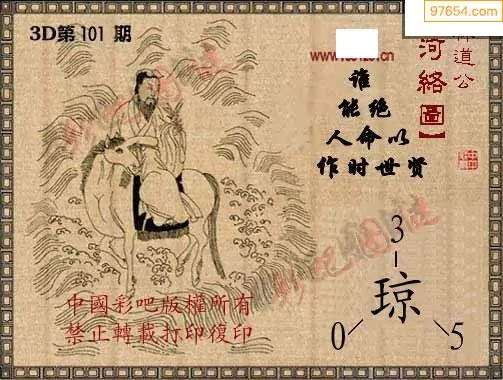 97654.com
3D第 101 期
河絡圖】
道公
誰
能 絶
人 命 以
作 时 世 贤
彩吧图迷
彩吧图迷
3
琼
0 5
中國彩吧版權所有
禁止轉載打印復印